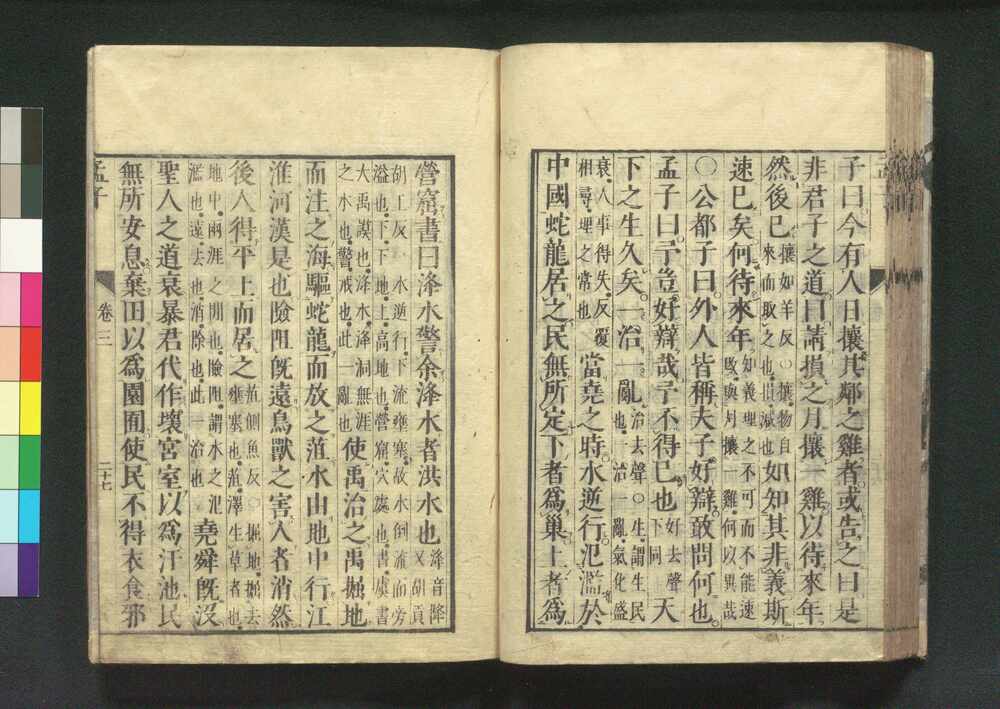 子曰今有人日攘其鄰之雞者或告之曰是
非君子之道曰請損之月攘一雞以待來年
然後已攘如羊反○攘物自來而取之也損減也如知其非義斯
速已矣何待來年知義理之不可而不能速改與月攘一雞何以異哉
○公都子曰外人皆稱夫子好辯敢問何也
孟子曰予豈好辯哉予不得已也好去聲下同天
下之生久矣一治一亂治去聲○生謂生民也一治一亂氣化盛
衰人事得失反覆相尋理之常也當堯之時水逆行氾濫於
中國蛇龍居之民無所定下者爲巢上者爲
營窟書曰洚水警余洚水者洪水也洚音降又胡貢
胡工反 水逆行下流壅塞故水倒流而旁溢也下下地上高地也營窟穴處也書虞書
大禹謨也洚水洚洞無涯之水也警戒也此一亂也使禹治之禹掘地
而注之海驅蛇龍而放之菹水由地中行江
淮河漢是也險阻既遠鳥獸之害人者消然
後人得平土而居之菹側魚反○掘地掘去壅塞也菹澤生草者也
地中兩涯之間也險阻謂水之氾濫也遠去也消除也此一治也堯舜既沒
聖人之道衰暴君代作壞宮室以爲汙池民
無所安息棄田以爲園囿使民不得衣食邪
孟子
卷三
二十七